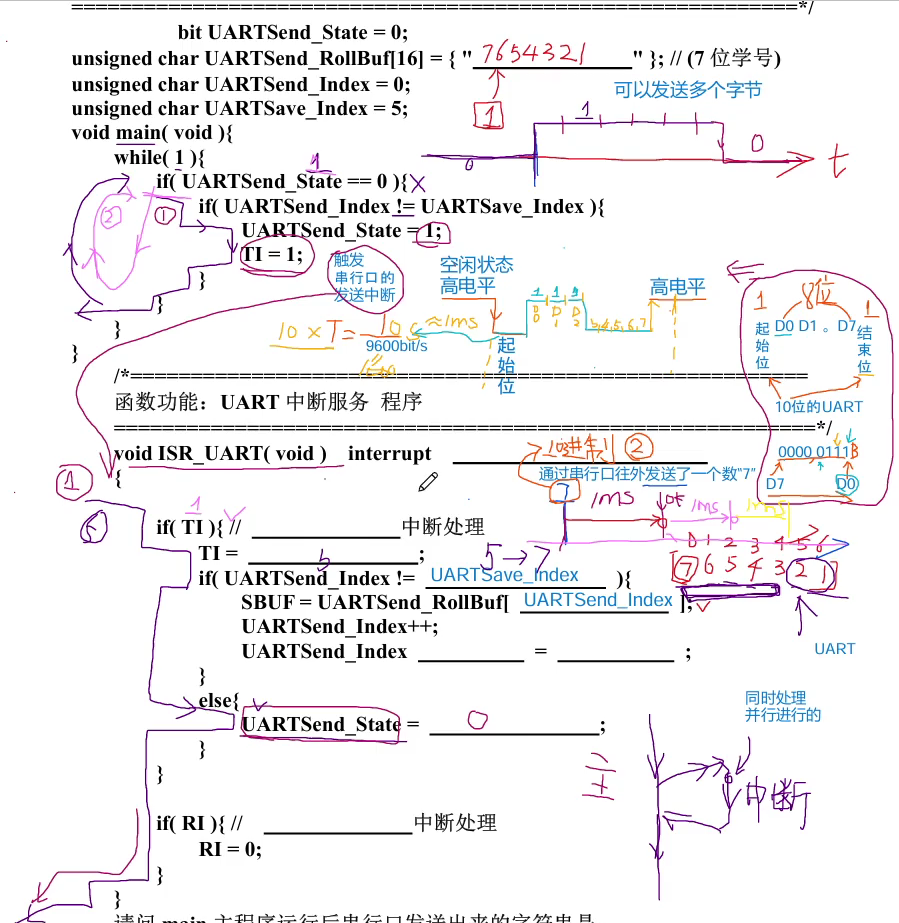 ==================================================================*/
bit UARTSend_State = 0;
unsigned char UARTSend_RollBuf[16] = { " 7654321 " }; // (7 位学号)
unsigned char UARTSend_Index = 0;
可以发送多个字节
unsigned char UARTSave_Index = 5;
1
1
void main( void ){
0
while( 1 ){
0
t
1
if( UARTSend_State == 0 ){
② ①
if( UARTSend_Index != UARTSave_Index ){
UARTSend_State = 1;
TI = 1;
触发
串行口的
发送中断
空闲状态
高电平
高电平
}
}
}
}
1 1 1
D0 D1 D2
3,4,5,6,7
10 × T =
≈1ms
9600bit/s
起始位
1 8位 1
起始位
D0 D1 。D7
结束位
10位的UART
0000 0111B
D7 D0
/*==================================================================
函数功能：UART 中断服务 程序
==================================================================*/
void ISR_UART( void ) interrupt
10进制 ②
通过串行口往外发送了一个数“7”
①
{
7
1ms
1ms
1ms
1
if( TI ){ // 中断处理
TI = ;
5
5→7
0 1 2 3 4 5 6
[7 6 5 4 3 2 1]
if( UARTSend_Index != UARTSave_Index ){
SBUF = UARTSend_RollBuf[ UARTSend_Index ];
UARTSend_Index++;
UARTSend_Index = ;
UART
}
else{
UARTSend_State = 0 ;
同时处理
并行进行的
}
}
主
中断
if( RI ){ // 中断处理
RI = 0;
}
}
请问 main 主程序运行后串行口发送出来的字符串是